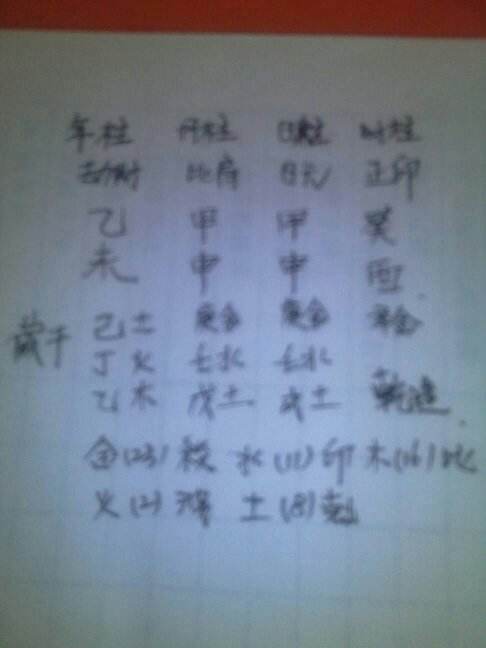 年柱 月柱 日柱 时柱
劫财 比肩 日元 正印
乙 甲 甲 癸
未 申 申 酉
藏干 己土 庚金 庚金 辛金
丁火 壬水 壬水
乙木 戊土 戊土 乾造
金(23)杀 水(11)印 木(16)比
火(2) 土(8)